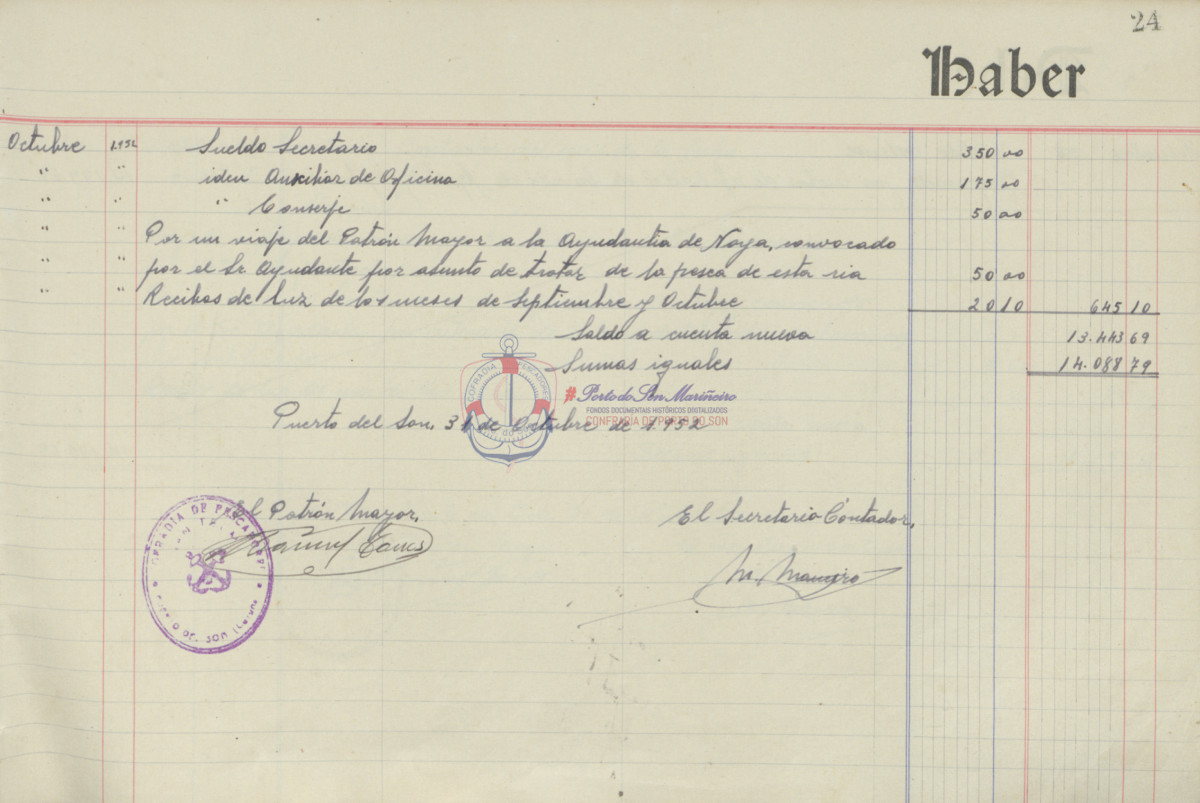 24
Haber
Octubre 1.952 Sueldo Secretario 350 00
" " idem Auxiliar de Oficina 175 00
" " " Conserje 50 00
" " Por un viaje del Patrón Mayor a la Ayudantía de Noya, convocado
" " por el Sr. Ayudante por asunto de tratar de la pesca de esta ria 50 00
" " Recibos de luz de los meses de Septiembre y Octubre 20 10 645 10
Saldo a cuenta nueva 13.443 69
Sumas iguales 14.088 79
COFRADIA PESCADORES
#PortodoSon Mariñeiro
FONDOS DOCUMENTAIS HISTÓRICOS DIXITALIZADOS
CONFRARÍA DE PORTO DO SON
Puerto del Son, 31 de Octubre de 1.952
El Patrón Mayor,
El Secretario Contador,
COFRADIA DE PESCADORES
SAN TELMO
PUERTO DEL SON
M. Maneiro